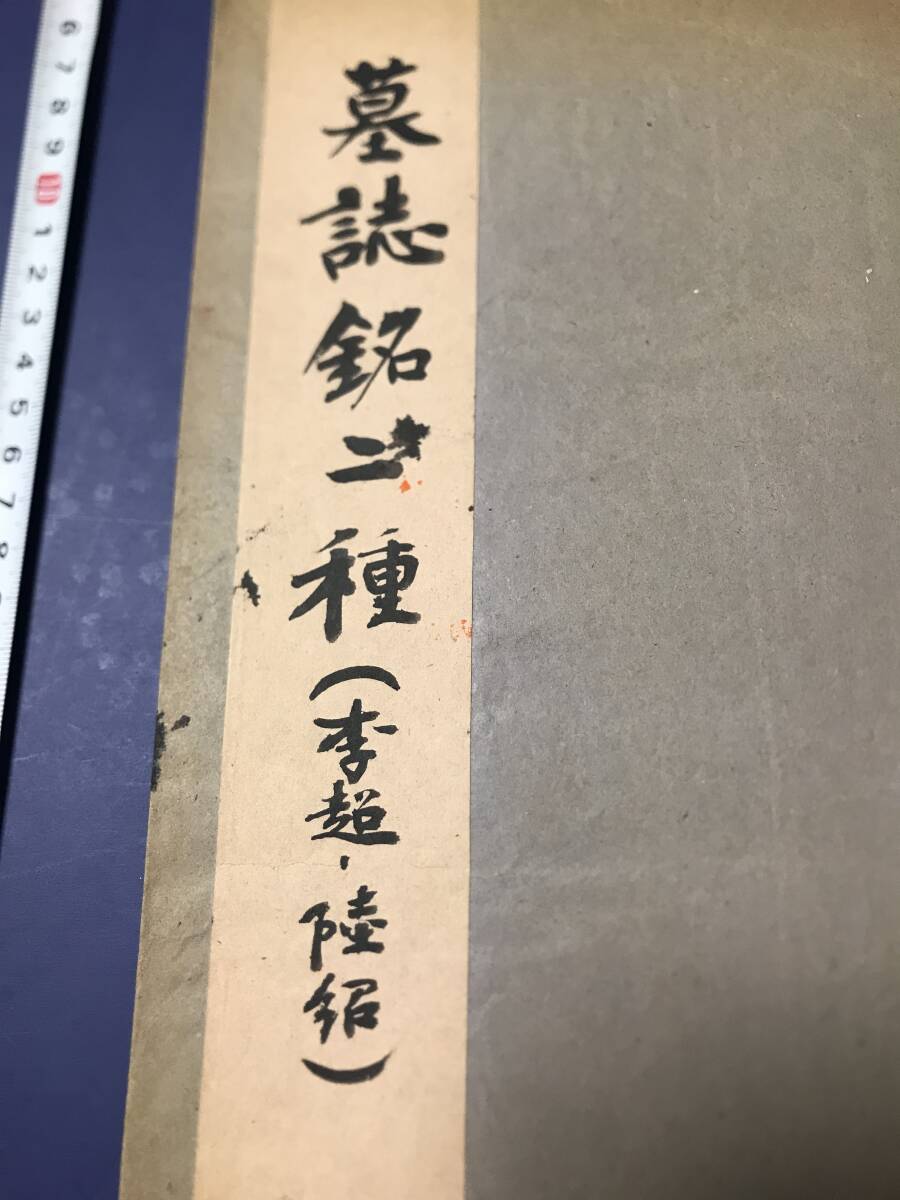 墓誌銘二種(李超、陸紹)
6 7 8 9 10 1 2 3 4 5 6 7 8